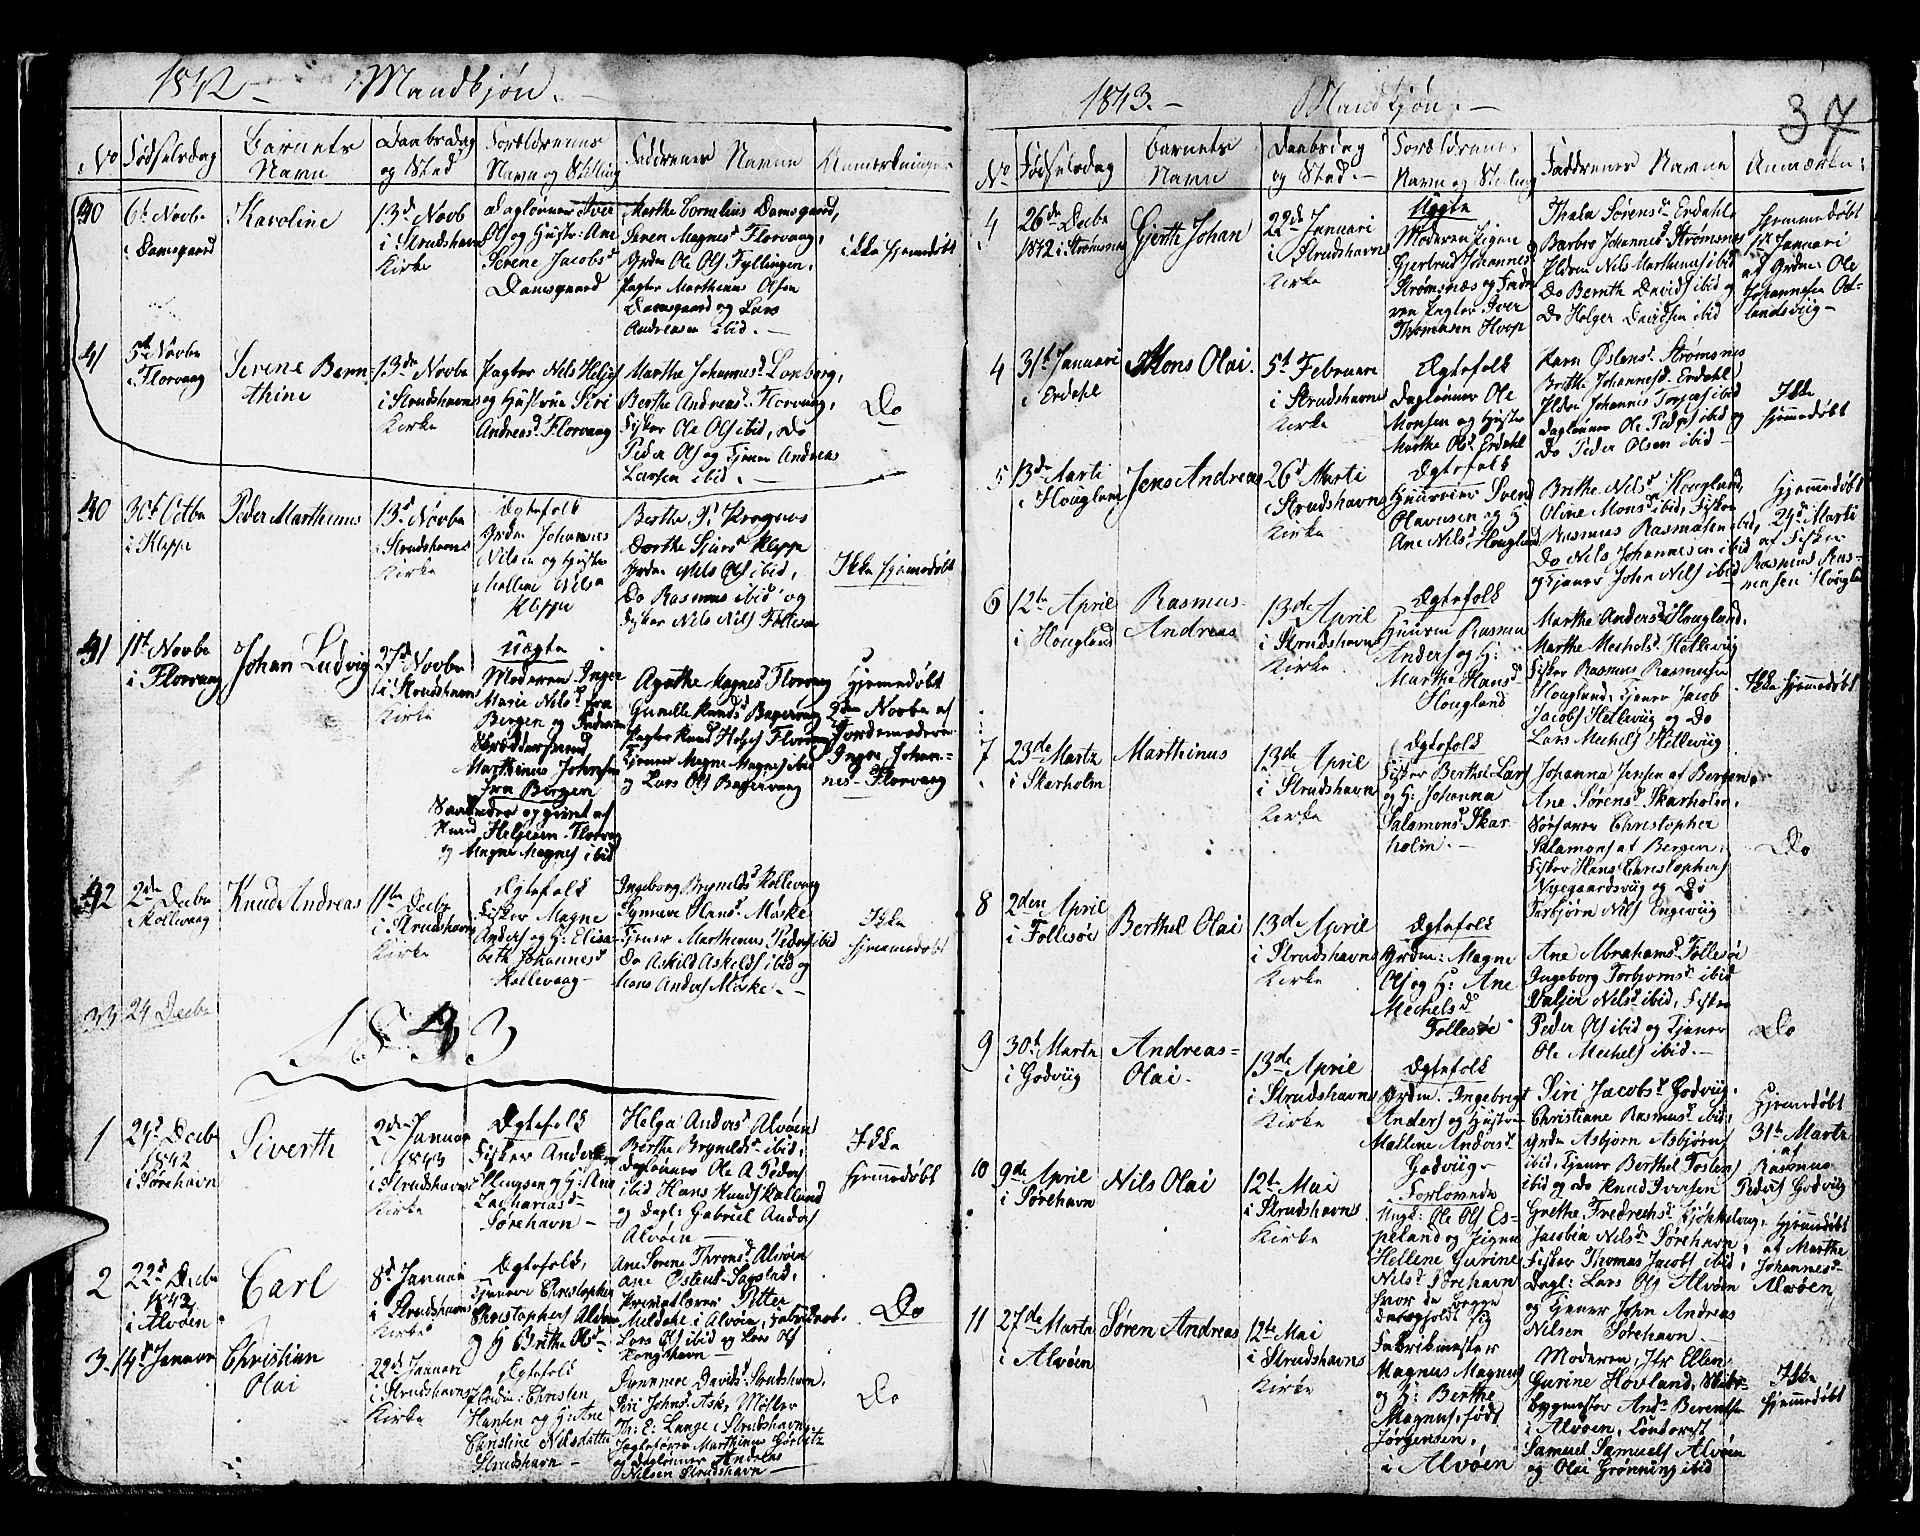 1842 – Mandkjøn. –
No
Fødselsdag
Barnets
Navn
Daabsdag
og Sted
Forældrenes
Navn og Stilling
Faddrenes Navne
Anmerkninger
40
6te Novbr
i Damsgaard
Karoline
13de Novb
i Strudshavns
Kirke
Daglønner Iver
Ols og Hustr: Ane
Serene Jacobsd
Damsgaard
Marthe Cornelius Damsgaard,
Seren Magnesd Florvaag,
Grdm Ole Ols Fyllingen,
Pagter Marthinus Olsen
Damsgaard og Lars
Andreasen ibid. –
ikke hjemedøbt
41
5te Novbr
i Florvaag
Serene Beren-
thine
13de Novbr
i Strudshavns
Kirke
Pagter Nils Heljes
og Hustrue Siri
Andreasd Florvaag
Marthe Johannesd Lonborg,
Berthe Andreasd Florvaag,
Fisker Ole Ols ibid, Do
Peder Ols og Tjener Andreas
Larsen ibid. –
Do
40
30te Octbr
i Kleppe
Peder Marthinus
13de Novbr
i Strudshavns
Kirke
Ægtefolk
Grdm Johannes
Nilsen og Hustr
Mallene Nilsd
Kleppe
Berthe Pd Kragenes
Dorthe Siursd Kleppe
Grdm Nils Ols ibid,
Do Rasmus ibid og
Fisker Nils Nils Follesøe
Ikke hjemedøbt
41
1te Novbr
i Florvaag
Johan Ludvig
27de Novbr
i Strudshavns
Kirke
Uægte
Moderen Inger
Marie Nilsd fra
Bergen og Faderen
Skræddersvend
Marthinus Johnsen
fra Bergen
Saaleder opgivet af
Knud Helgesen Florvaag
og Magne Magnes ibid
Agathe Magnesd Florvaag
Gunille Knudsd Bagervaag
Pagter Knud Helges Florvaag
Tjener Magne Magnes ibid
og Lars Ols Bagervaag
Hjemedøbt
2den Novbr af
Jordemoderen
Inger Johan-
nesd Florvaag
42
2de Decbr
Kollevaag
Knud Andreas
11te Decbr
i Strudshavns
Kirke
Ægtefolk
Fisker Magne
Anders og H: Elisa-
beth Johannesd
Kollevaag –
Ingeborg Brynelds Kollevaag
Synneve Hansd Mørke
Tjener Marthinus Peders ibid
Do Askild Askelds ibid og
Mons Anders Mørke. –
Ikke
hjemmedøbt
33 24 Decbr
1843
1
24de Decbr
1842
i Sørehavn
Siverth
2de Januar
1843
i Strudshavns
Kirke
Ægtefolk
Fisker Anders
Mogsen og H: Ane
Zachariasd
Sørehavn –
Helga Andersd Alvøen
Berthe Bryneldsd ibid,
Daglønner Ole A. Peders
ibid Hans Knuds Kalland
og Dagl: Gabriel Anders
Alvøen
Ikke
Hjemmedøbt
2
22de Decbr
1842
i Alvøen
Carl
8de Januar
i Strudshavns
Kirke
Ægtefolk,
Tjenere Christopher
Christophers Alvøen
og H Berthe Olsd –
Ane Sørene Thronsd Alvøen
Ane Østensd Sagstad,
Privatlærer Petter
Meldahl i Alvøen, Fabrikarb.
Lars Ols ibid og Lars Ols
Kongshavn –
Do
3. 14de Januar
Christian
Olai
22de Januari
i Strudshavns
Kirke
Ægtefolk
Pladm: Christen
Hansen og H: Ane
Christine Nilsdatter
Strudshavn –
Synneve Davidsd Strudshavn,
Siri Johnsd Ask, Møller
Th: E: Lange i Strudshavn,
Jagtefører Marthinus Gørbitz
og Daglønner Anders
Nilsen Strudshavn –
Do
1843. – Mandkjøn. –
37
No
Fødselsdag
Barnets
Navn
Daabsdag
og Sted. –
Forældrenes
Navn og Stilling
Faddrenes Navne
Anmærkn:
4
26de Decbr
1842 i Strømsnes
Gjerth Johan
22de Januari
i Strudshavns
Kirke
Uægte
Moderen Pigen
Gjertrud Johannesd
Strømsnæs og Fade-
ren Pagter Iver
Thomasen Hoop
Thala Sørensd Erdahl
Barbro Johannesd Strømsnes
Gldm Nils Marthinus ibid
Do Bernth Davids ibid og
Do Holger Davidsen ibid
Hjemmedøbt
1te Januari
af Grdm: Ole
Johannesen Od-
landsviig –
4
31te Januari
i Erdahl
Mons Olai.
5te Februari
i Strudshavns
Kirke
Ægtefolk
Daglønner Ole
Monsen og Hustr
Marthe Olsd Erdahl
Karn Østensd Strømsnes
Brithe Johannesd Erdahl
Gldm Johannes Torjas ibid
Daglønner Ole Peders ibid og
Do Peder Olsen ibid –
Ikke
hjemmedøbt
5
13de Marti
i Hougland
Jens Andreas
26de Marti
i Strudshavns
Kirke
Ægtefolk
Huusmand Svend
Olavusen og H
Ane Nilsd Hougland
Brithe Nilsd Hougland,
Oline Monsd ibid, Fisker
Rasmus Rasmusen ibid,
Do Nils Johannesen ibid
og Tjener John Nils ibid
Hjemmedøbt
24de Marti
af Fisker
Rasmus Ras-
musen Hougland
6
12te April
i Hougland
Rasmus
Andreas
13de April
i Strudshavns
Kirke
Ægtefolk
Huusm Rasmus
Anders og H:
Marthe Hansd
Hougland
Marthe Andersd Hougland.
Marthe Mechelsd Hellevig
Fisker Rasmus Rasmusen
Hougland, Tjener Jacob
Jacobs Hellevig og Do
Lars Mechels Hilleviig
Ikke hjemmedøbt
7
23de Marts
i Skarholm
Marthinus
13de April
i Strudshavns
Kirke
Ægtefolk
Fisker Berthel Lars
og H: Johanna
Salamonsd Skar-
holm. –
Johanna Jensen af Bergen,
Ane Sørensd Skarholm,
Søefarer Christopher
Salamons af Bergen,
Fisker Hans Christophers
Nygaardsviig og Do
Torbjørn Nils Engeviig
Do
8
2den April
i Follesøe
Berthel Olai
13de April
i Strudshavns
Kirke
Ægtefolk
Grdm: Magne
Ols og H: Ane
Mechelsd
Follesøe
Ane Abrahamsd Follesøe
Ingeborg Torbjornsd ibid
Valjer Nilsd ibid, Fisker
Peder Ols ibid og Tjener
Ole Mechels ibid. –
Do
9
30te Marts
i Godviig
Andreas-
Olai.
13de April
i Strudshavns
Kirke
Ægtefolk
Grdm. Ingebrigt
Anders og Hustru
Malene Andersd
Godviig –
Siri Jacobsd Godviig.
Christiane Rasmusd ibid,
Grdm Asbjørn Asbjørns
ibid, Tjener Berthel Tostens
ibid og Do Knud Iversen
Hjemmedøbt
31te Marts
af
Rasmus
Peders Godviig
10
9de April
i Sørehavn
Nils Olai
12te Mai
i Strudshavns
Kirke
Forlovede
Ungk: Ole Ols Es-
peland og Pigen
Hellene Gurine
Nilsd Sørehavn
hvor de begge
have opholdt sig
Grethe Fredrechsd Kjøkkelvig,
Jacobia Nilsd Sørehavn,
Fisker Thomas Jacobs ibid,
Dagl: Lars Ols Alvøen
og Tjener John Andreas
Nilsen Sørehavn. –
Hjemmedøbt
af Marthe
Johannesd
Alvøen
11
27de Marts
i Alvøen
Søren Andreas
12te Mai
i Strudshavns
Kirke
Fabrikmester
Magnus Magnus
og H: Berthe
Magnus, født
Jørgensen,
i Alvøen
Moderen, Jfr Ellen
Gurine Hovland, Skibs-
bygmester Ands Berentsen
i Alvøen, Contorist
Samuel Samuels Alvøen
og Olai Grønning ibid
Ikke
hjemmedøbt